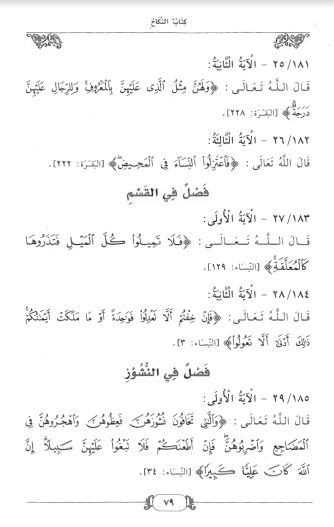 كِتَابُ النِّكَاحِ
٢٥/١٨١ - الْآيَةُ الثَّانِيَةُ:
قَالَ اللَّهُ تَعَالَى: ﴿وَلَهُنَّ مِثْلُ الَّذِى عَلَيْهِنَّ بِالْمَعْرُوفِ وَلِلرِّجَالِ عَلَيْهِنَّ
دَرَجَةٌ﴾ [البَقَرَة: ٢٢٨].
٢٦/١٨٢ - الْآيَةُ الثَّالِثَةُ:
قَالَ اللَّهُ تَعَالَى: ﴿فَاعْتَزِلُوا النِّسَآءَ فِى الْمَحِيضِ﴾ [البَقَرَة: ٢٢٢].
فَصْلٌ فِي الْقَسْمِ
٢٧/١٨٣ - الْآيَةُ الْأُولَى:
قَالَ اللَّهُ تَعَالَى: ﴿فَلَا تَمِيلُوا كُلَّ الْمَيْلِ فَتَذَرُوهَا
كَالْمُعَلَّقَةِ﴾ [النِّسَاء: ١٢٩].
٢٨/١٨٤ - الْآيَةُ الثَّانِيَةُ:
قَالَ اللَّهُ تَعَالَى: ﴿فَإِنْ خِفْتُمْ أَلَّا تَعْدِلُوا فَوَاحِدَةً أَوْ مَا مَلَكَتْ أَيْمَانُكُمْ
ذَلِكَ أَدْنَى أَلَّا تَعُولُوا﴾ [النِّسَاء: ٣].
فَصْلٌ فِي النُّشُوزِ
٢٩/١٨٥ - الْآيَةُ الْأُولَى:
قَالَ اللَّهُ تَعَالَى: ﴿وَالَّتِى تَخَافُونَ نُشُوزَهُنَّ فَعِظُوهُنَّ وَاهْجُرُوهُنَّ فِى
الْمَضَاجِعِ وَاضْرِبُوهُنَّ فَإِنْ أَطَعْنَكُمْ فَلَا تَبْغُوا عَلَيْهِنَّ سَبِيلًا إِنَّ
اللَّهَ كَانَ عَلِيًّا كَبِيرًا﴾ [النِّسَاء: ٣٤].
٧٩